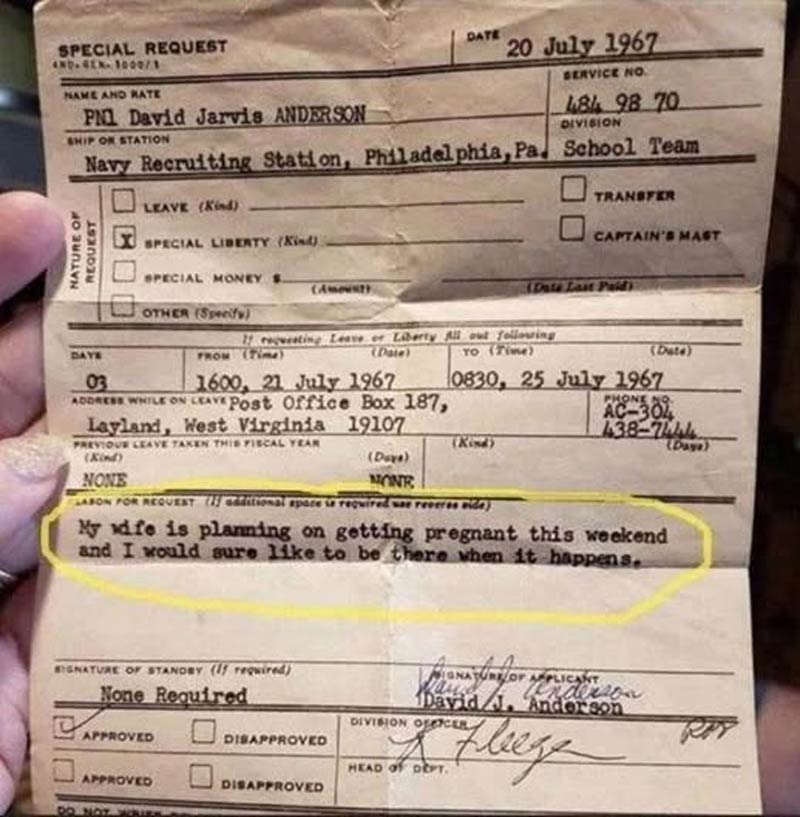 SPECIAL REQUEST
DATE 20 July 1967
NAME AND RATE
SERVICE NO.
PN1 David Jarvis ANDERSON
484 98 70
SHIP OR STATION
DIVISION
Navy Recruiting Station, Philadelphia, Pa.
School Team
NATURE OF REQUEST
LEAVE (Kind)
TRANSFER
X SPECIAL LIBERTY (Kind)
CAPTAIN'S MAST
SPECIAL MONEY $
(Amount)
(Date Last Paid)
OTHER (Specify)
If requesting Leave or Liberty fill out following
DAYS
FROM (Time) (Date)
TO (Time) (Date)
03
1600, 21 July 1967
0830, 25 July 1967
ADDRESS WHILE ON LEAVE Post Office Box 187,
PHONE NO.
AC-304
Layland, West Virginia 19107
438-7444
PREVIOUS LEAVE TAKEN THIS FISCAL YEAR
(Kind) (Days)
(Kind) (Days)
NONE
NONE
EASON FOR REQUEST (If additional space is required use reverse side)
My wife is planning on getting pregnant this weekend
and I would sure like to be there when it happens.
SIGNATURE OF STANDBY (If required)
SIGNATURE OF APPLICANT
None Required
David J. Anderson
David J. Anderson
APPROVED
DISAPPROVED
DIVISION OFFICER
APPROVED
DISAPPROVED
HEAD OF DEPT.
DO NOT WRITE